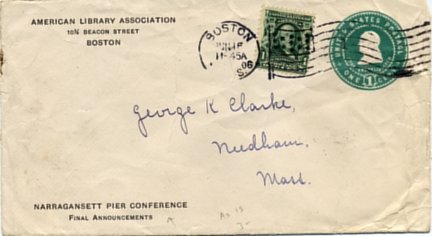 AMERICAN LIBRARY ASSOCIATION
10½ BEACON STREET
BOSTON
BOSTON
11-45A
06
UNITED STATES POSTAGE
ONE 1
George K Clarke,
Needham,
Mass.
NARRAGANSETT PIER CONFERENCE
FINAL ANNOUNCEMENTS